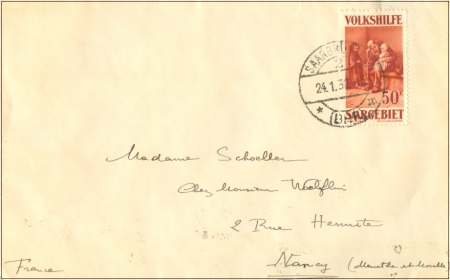 VOLKSHILFE
50
SAARGEBIET
24.1.31
Madame Schoeller
Chez Monsieur Woelflin
2 Rue Hermite
Nancy (Meurthe et Moselle)
France